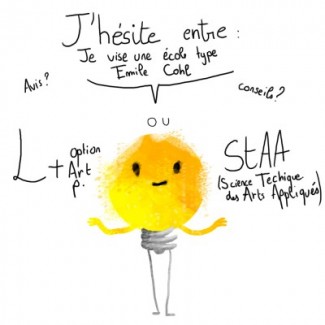 J'hésite entre :
Je vise une école type
Emile Cohl
Avis?
conseils?
OU
L + option
Art
P.
StAA
(Science Techique
des Arts Appliqués)